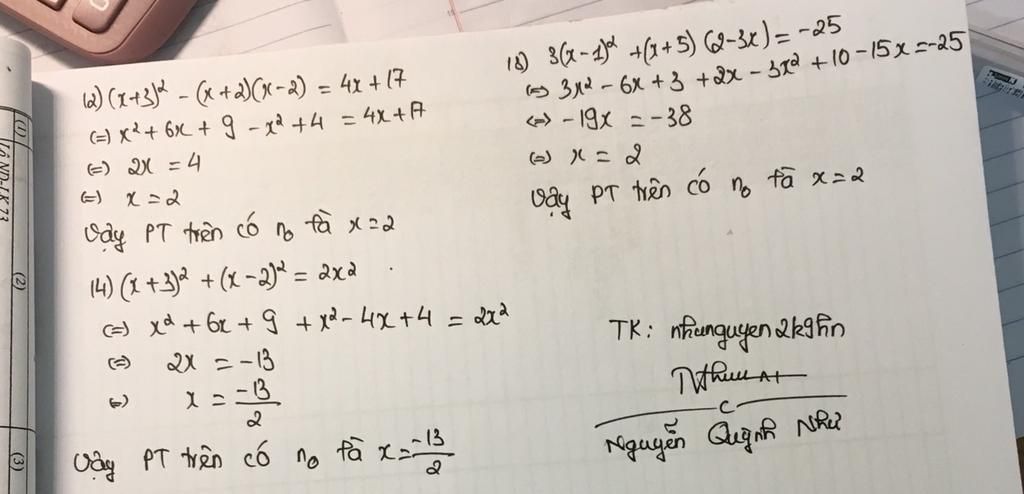 12) (x+3)² - (x+2)(x-2) = 4x+17
(=) x² + 6x + 9 - x² + 4 = 4x+17
(=) 2x = 4
(=) x = 2
Vậy PT trên có n₀ là x=2
14) (x+3)² + (x-2)² = 2x²
(=) x² + 6x + 9 + x² - 4x + 4 = 2x²
(=) 2x = -13
(=) x = -13/2
Vậy PT trên có n₀ là x = -13/2
18) 3(x-1)² + (x+5)(2-3x) = -25
(=) 3x² - 6x + 3 + 2x - 3x² + 10 - 15x = -25
(=) -19x = -38
(=) x = 2
Vậy PT trên có n₀ là x=2
TK: nhunguyen2k9hn
Nguyễn Quỳnh Như
(1)
(2)
(3)